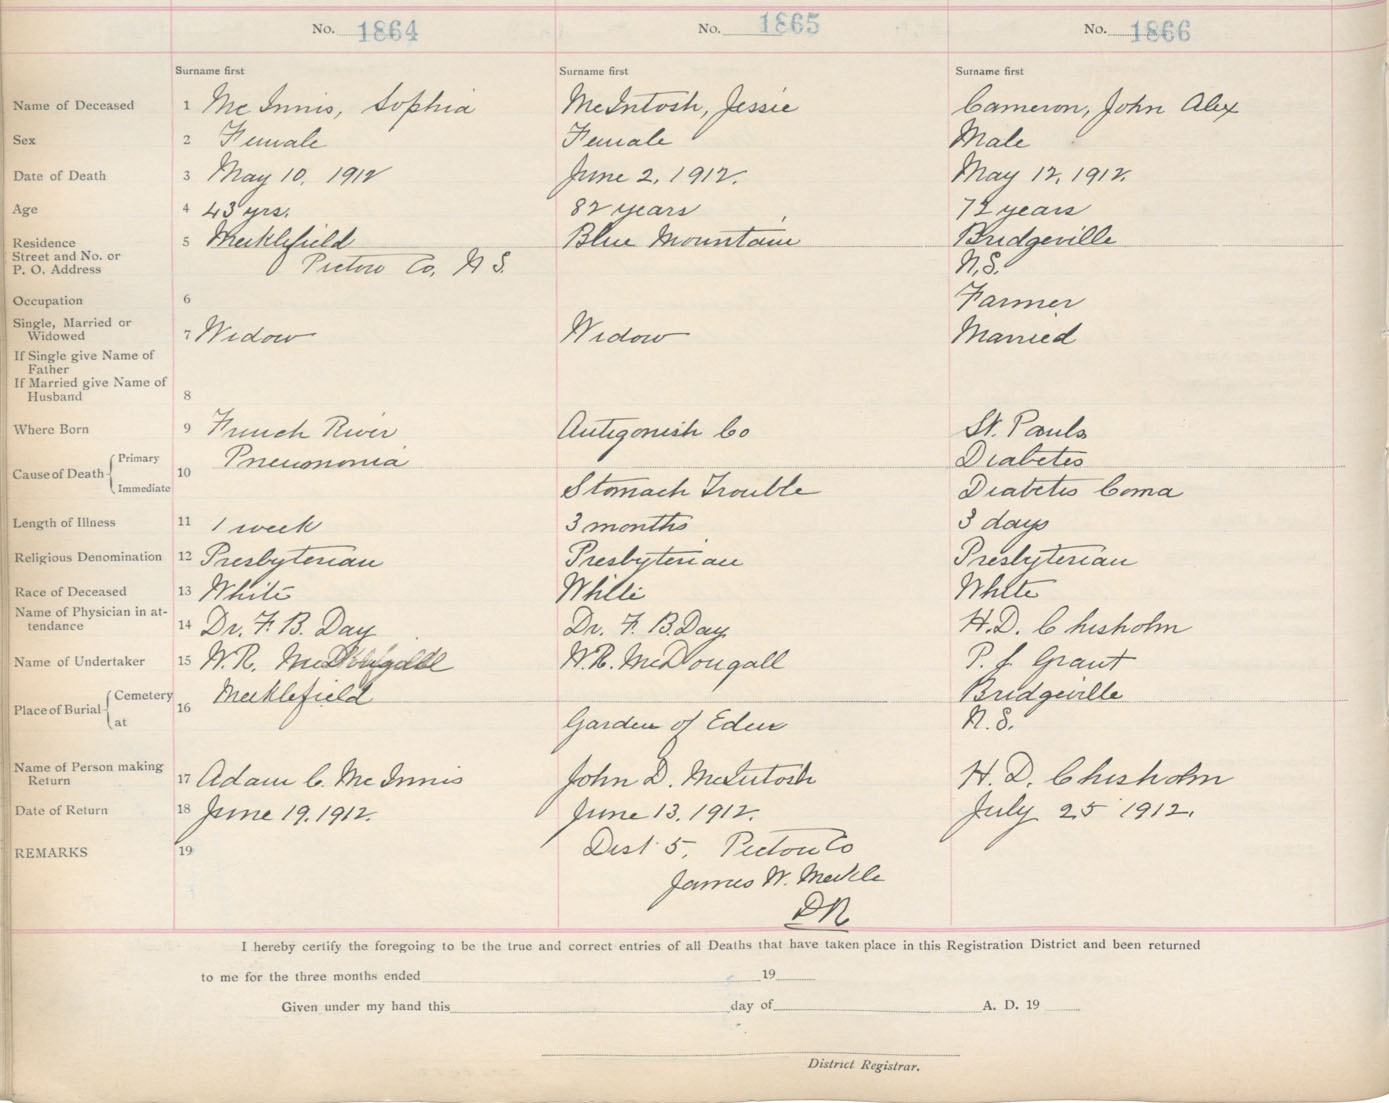 No. 1864 No. 1865 No. 1866
Surname first Surname first Surname first
Name of Deceased 1 McInnis, Sophia McIntosh, Jessie Cameron, John Alex
Sex 2 Female Female Male
Date of Death 3 May 10, 1912 June 2, 1912. May 12, 1912.
Age 4 43 yrs. 82 years 72 years
Residence 5 Meiklefield Blue Mountain Bridgeville
Street and No. or
P. O. Address Pictou Co, N S. N.S.
Occupation 6 Farmer
Single, Married or
Widowed 7 Widow Widow Married
If Single give Name of
Father
If Married give Name of
Husband 8
Where Born 9 French River Antigonish Co St. Pauls
Cause of Death Primary 10 Pneumonia Diabetes
Immediate Stomach Trouble Diabetis Coma
Length of Illness 11 1 week 3 months 3 days
Religious Denomination 12 Presbyterian Presbyterian Presbyterian
Race of Deceased 13 White White White
Name of Physician in at-
tendance 14 Dr. F. B. Day Dr. F. B. Day H. D. Chisholm
Name of Undertaker 15 W. R. W. R. McDougall P. J. Grant
Place of Burial Cemetery 16 Meiklefield Bridgeville
at Garden of Eden N. S.
Name of Person making
Return 17 Adam C. McInnis John D. McIntosh H. D. Chisholm
Date of Return 18 June 19, 1912. June 13, 1912. July 25 1912.
REMARKS 19 Dist 5, Pictou Co
James W. Meikle
DR
I hereby certify the foregoing to be the true and correct entries of all Deaths that have taken place in this Registration District and been returned
to me for the three months ended 19
Given under my hand this day of A. D. 19
District Registrar.